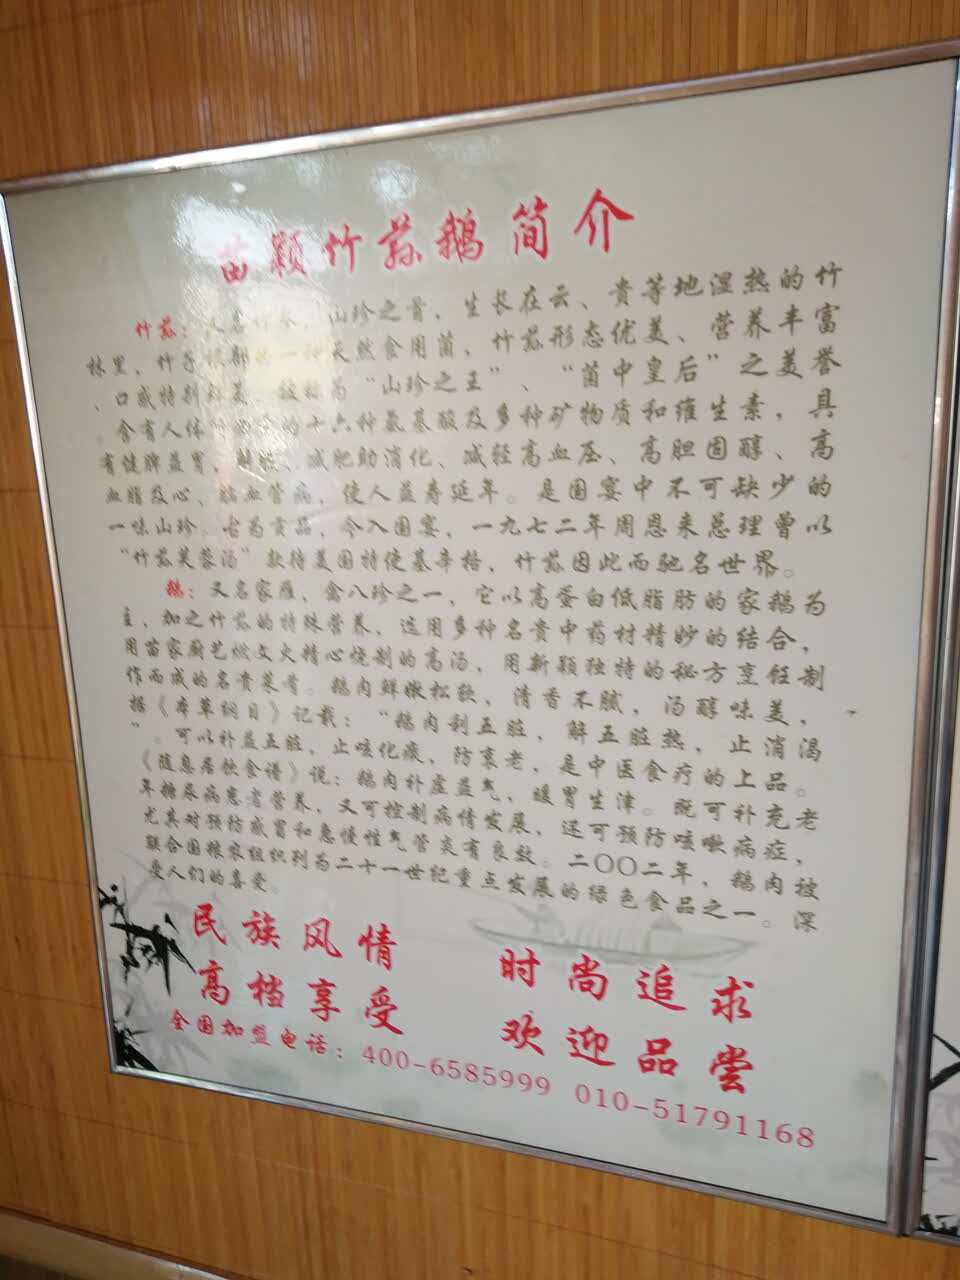 苗颖竹荪鹅简介
竹荪：又名竹参，山珍之首，生长在云、贵等地湿热的竹
林里，竹子根部的一种天然食用菌，竹荪形态优美、营养丰富
、口感特别鲜美，被称为“山珍之王”、“菌中皇后”之美誉
，含有人体所必需的十六种氨基酸及多种矿物质和维生素，具
有健脾益胃，、减肥助消化、减轻高血压、高胆固醇、高
血脂及心、脑血管病，使人益寿延年。是国宴中不可缺少的
一味山珍，古为贡品，今入国宴，一九七二年周恩来总理曾以
“竹荪芙蓉汤”款待美国特使基辛格，竹荪因此而驰名世界。
鹅：又名家雁，禽八珍之一，它以高蛋白低脂肪的家鹅为
主，加之竹荪的特殊营养，选用多种名贵中药材精妙的结合，
用苗家厨艺燃文火精心烧制的高汤，用新颖独特的秘方烹饪制
作而成的名贵菜肴。鹅肉鲜嫩松软，清香不腻，汤醇味美，
据《本草纲目》记载：“鹅肉利五脏，解五脏热，止消渴
”。可以补益五脏，止咳化痰，防衰老，是中医食疗的上品。
《随息居饮食谱》说：鹅肉补虚益气，暖胃生津。既可补充老
年糖尿病患者营养，又可控制病情发展，还可预防咳嗽病症，
尤其对预防感冒和急慢性气管炎有良效。二〇〇二年，鹅肉被
联合国粮农组织列为二十一世纪重点发展的绿色食品之一。深
受人们的喜爱。
民族风情 时尚追求
高档享受 欢迎品尝
全国加盟电话：400-6585999 010-51791168